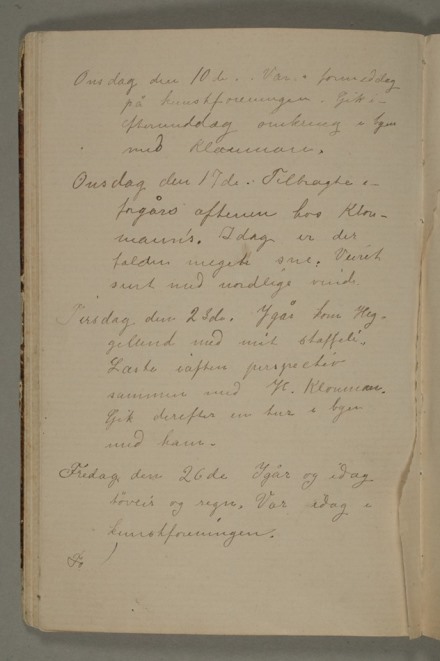 Onsdag den 10de. Var i formiddag
på kunstforeningen. Gik i
eftermiddag omkring i byen
med Klouman.
Onsdag den 17de. Tilbragte i
forgårs aftenen hos Klou-
mann's. Idag er der
falden meget sne. Veiret
surt med nordlig vind.
Tirsdag den 23de. Igår kom Heg-
gelund med mit staffeli.
Læste iaften perspectiv
sammen med K. Klouman.
Gik derefter en tur i byen
med ham.
Fredag den 26de Igår og idag
töveir og regn. Var idag i
kunstforeningen.